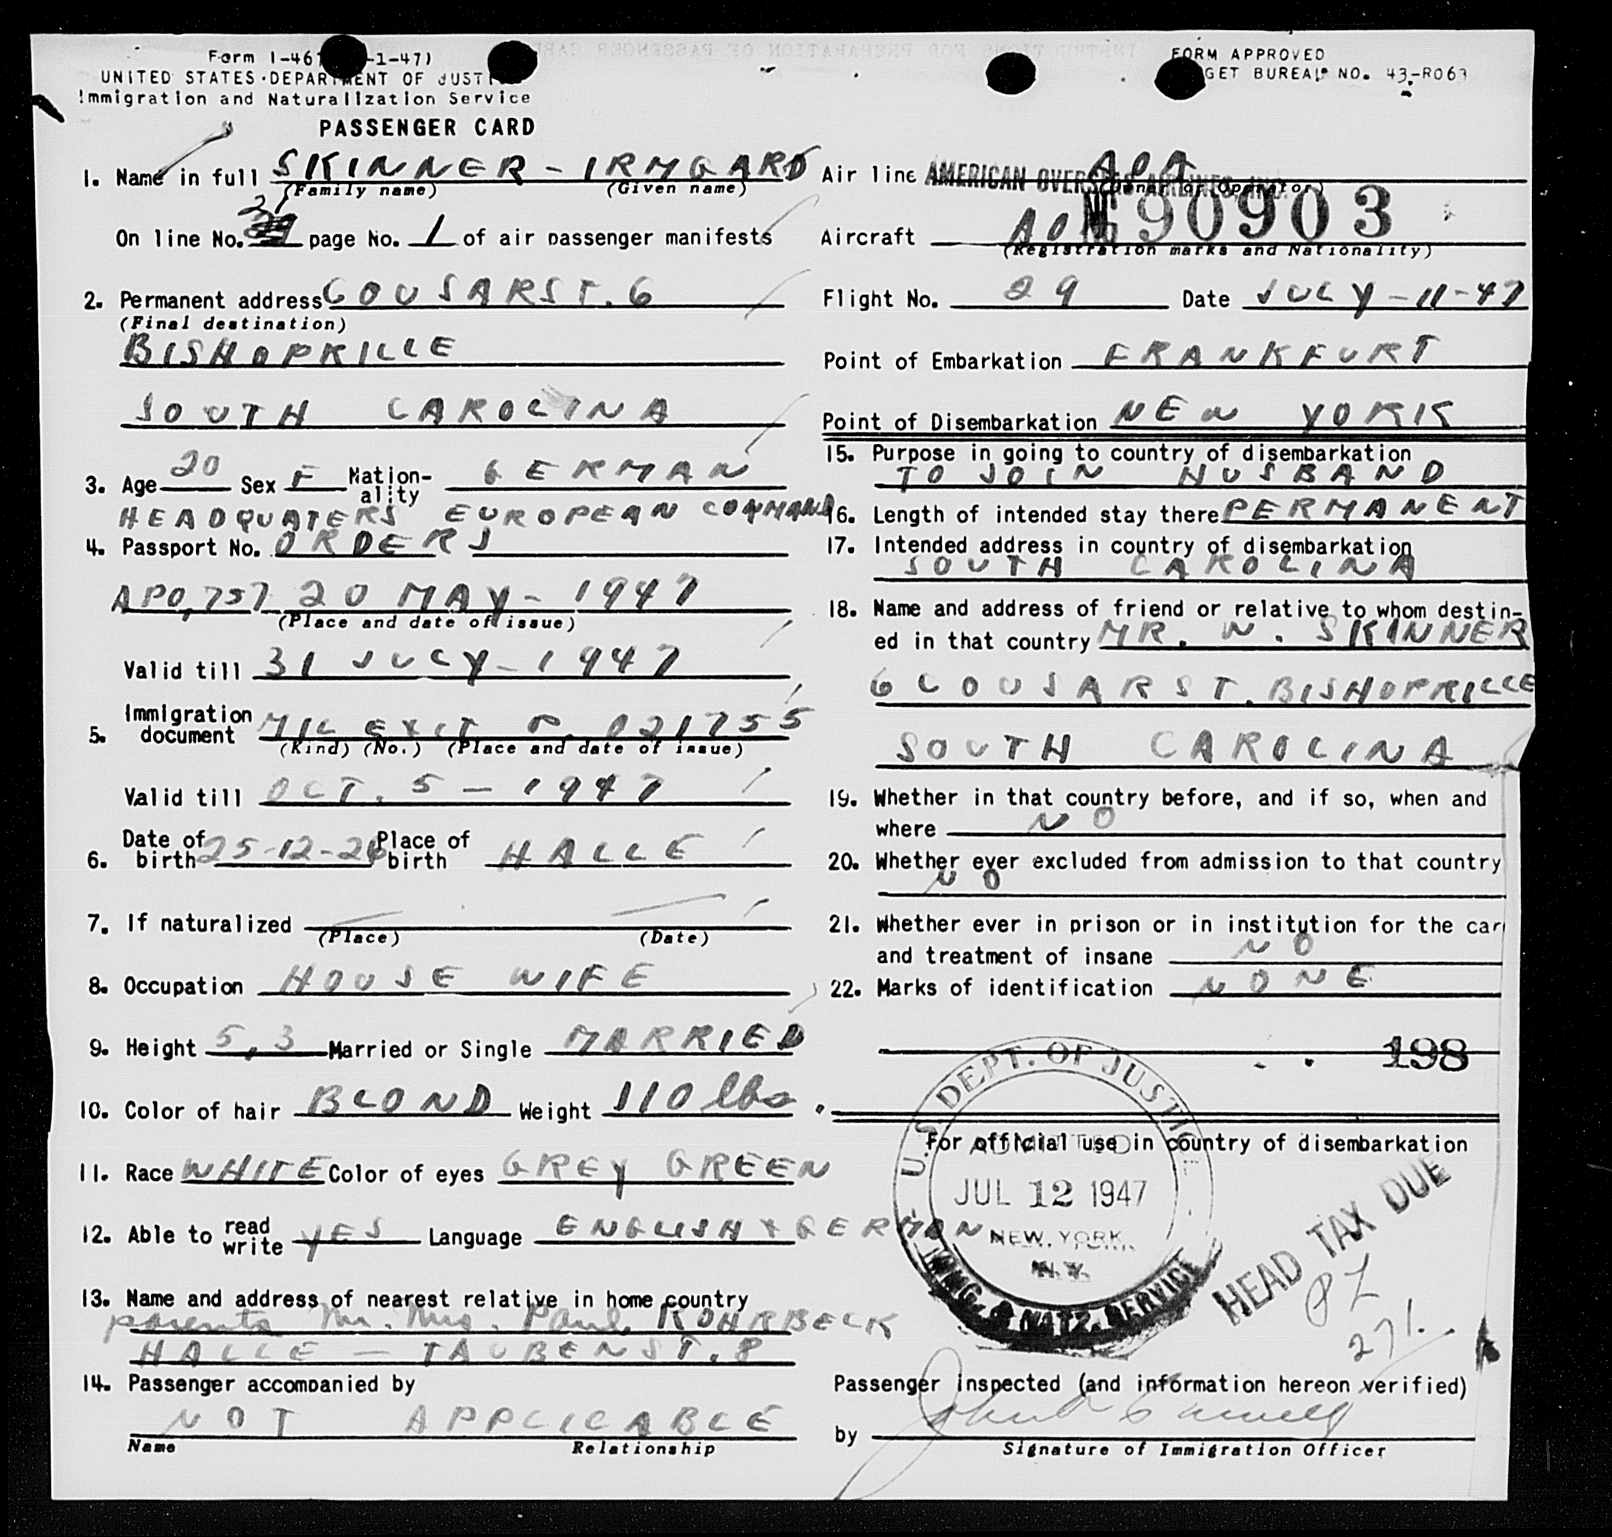 Form I-46 -1-47)
UNITED STATES DEPARTMENT OF JUST
Immigration and Naturalization Service
FORM APPROVED
GET BUREAU NO. 43-R063
PASSENGER CARD
1. Name in full SKINNER - IRMGARD
(Family name) (Given name)
On line No. 21 page No. 1 of air passenger manifests
2. Permanent address COUSARST. 6
(Final destination)
BISHOPRILLE
SOUTH CAROLINA
3. Age 20 Sex F Nation-ality GERMAN
HEADQUATERS EUROPEAN COMMAND
4. Passport No. ORDERS
APO,757 20 MAY - 1947
(Place and date of issue)
Valid till 31 JULY - 1947
5. Immigration document MIL EXIT P. 021755
(Kind) (No.) (Place and date of issue)
Valid till OCT. 5 - 1947
6. Date of birth 25-12-26 Place of birth HALLE
7. If naturalized
(Place) (Date)
8. Occupation HOUSE WIFE
9. Height 5,3 Married or Single MARRIED
10. Color of hair BLOND Weight 110 lbs.
11. Race WHITE Color of eyes GREY GREEN
12. Able to read write YES Language ENGLISH + GERMAN
13. Name and address of nearest relative in home country
parents Mr. Mrs. Paul ROHRBECK
HALLE - TAUBENST. 8
14. Passenger accompanied by
NOT APPLICABLE
Name Relationship
Air line AMERICAN OVERSEAS AIRLINES, INC. AOA
(Owner or operator)
Aircraft AOA NC 90903
(Registration marks and Nationality)
Flight No. 29 Date JULY-11-47
Point of Embarkation FRANKFURT
Point of Disembarkation NEW YORK
15. Purpose in going to country of disembarkation
TO JOIN HUSBAND
16. Length of intended stay there PERMANENT
17. Intended address in country of disembarkation
SOUTH CAROLINA
18. Name and address of friend or relative to whom destin-
ed in that country MR. W. SKINNER
6 COUSARST. BISHOPRILLE
SOUTH CAROLINA
19. Whether in that country before, and if so, when and
where NO
20. Whether ever excluded from admission to that country
NO
21. Whether ever in prison or in institution for the car
and treatment of insane NO
22. Marks of identification NONE
198
For official use in country of disembarkation
U.S. DEPT. OF JUSTICE
ADMITTED
JUL 12 1947
NEW YORK,
N.Y.
IMMG. & NATZ. SERVICE
HEAD TAX DUE
271.
Passenger inspected (and information hereon verified)
by
Signature of Immigration Officer